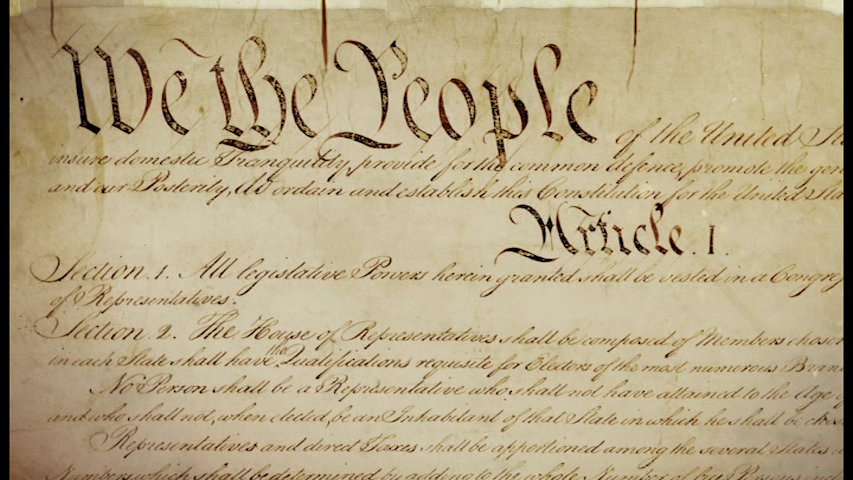 We the People of the United Sta
insure domestic Tranquility, provide for the common defence, promote the gen
and our Posterity, do ordain and establish this Constitution for the United Sta
Article. I.
Section. 1. All legislative Powers herein granted shall be vested in a Congre
of Representatives.
Section. 2. The House of Representatives shall be composed of Members chosen
in each State shall have the Qualifications requisite for Electors of the most numerous Bran
No Person shall be a Representative who shall not have attained to the Age o
and who shall not, when elected, be an Inhabitant of that State in which he shall be chose
Representatives and direct Taxes shall be apportioned among the several States w
Numbers, which shall be determined by adding to the whole Number of free Persons, incl